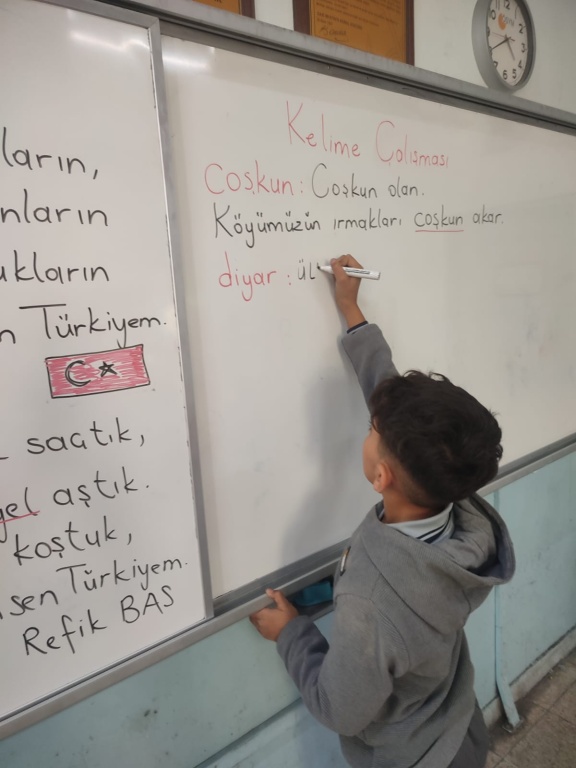 ların,
nların
ukların
n Türkiyem.
saatık,
gel aştık.
koştuk,
sen Türkiyem.
Refik BAS
Kelime Çalışması
Coşkun: Coşkun olan.
Köyümüzün ırmakları coşkun akar.
diyar: ül